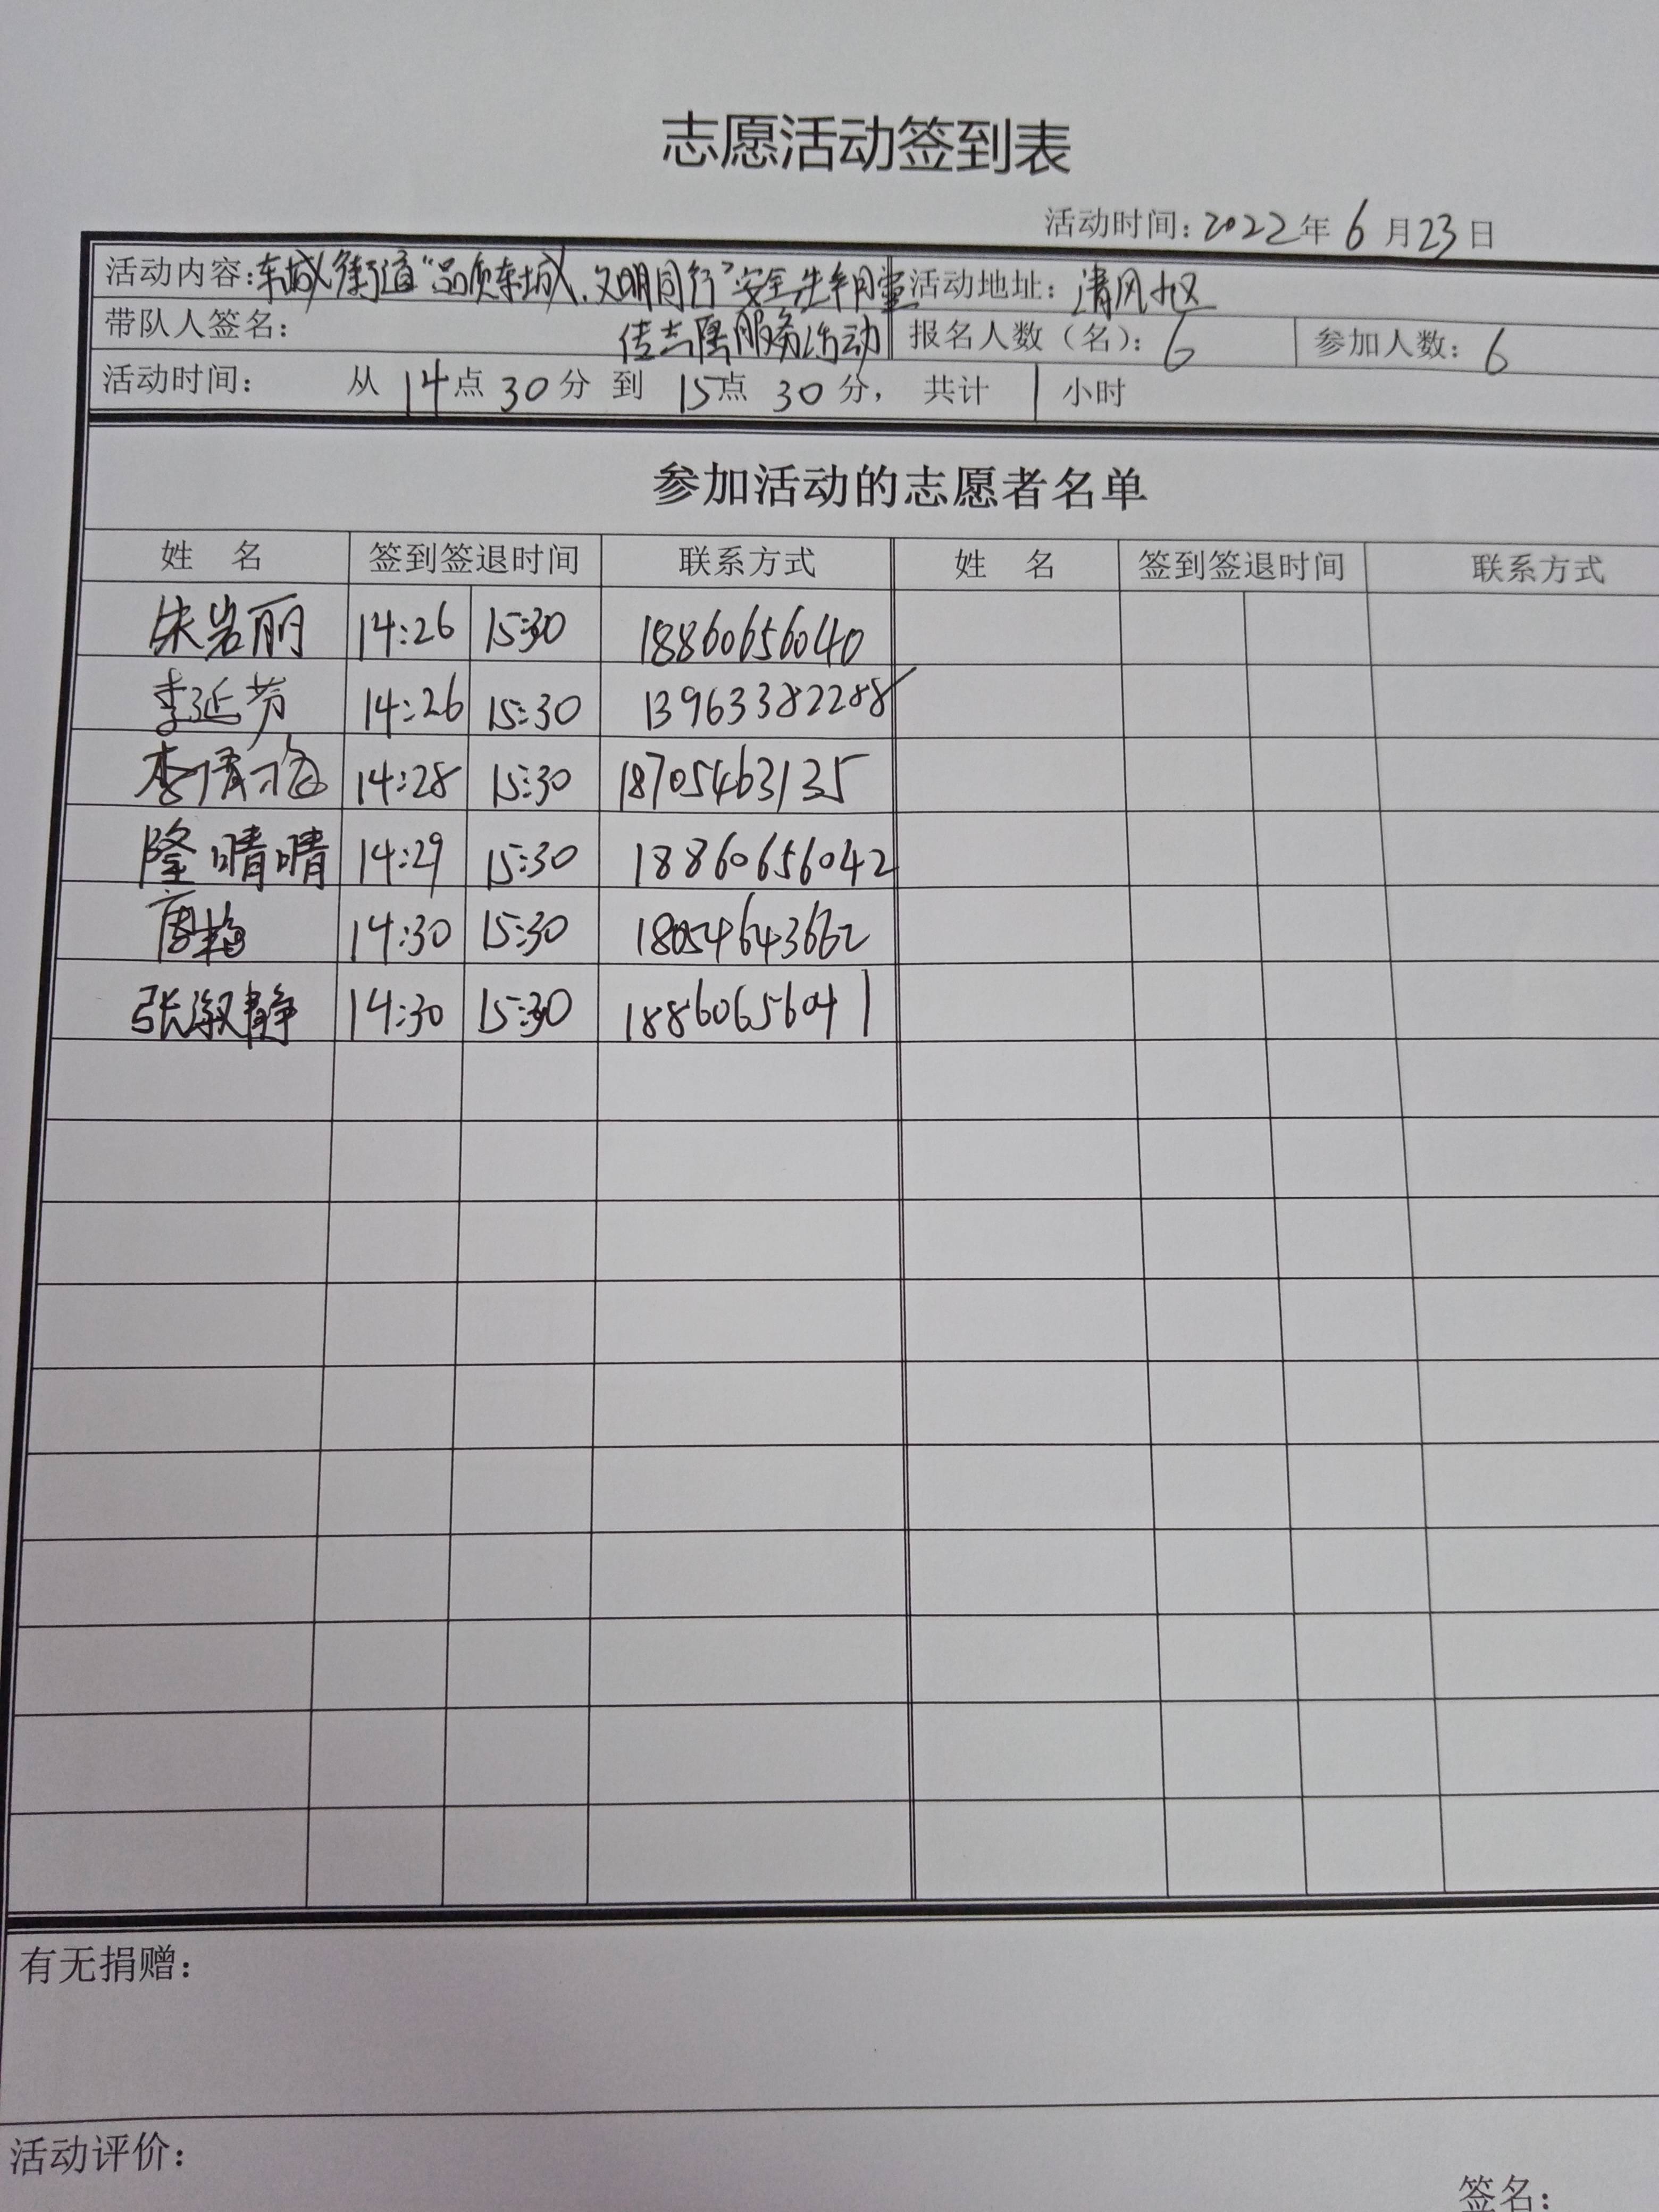 志愿活动签到表
活动时间：2022年6月23日
活动内容：东城街道“品质东城、文明同行”安全生产月宣 活动地址：清风小区
带队人签名： 传志愿服务活动 报名人数（名）：6 参加人数：6
活动时间： 从14点30分到15点30分，共计1小时
参加活动的志愿者名单
姓 名 签到签退时间 联系方式 姓 名 签到签退时间 联系方式
朱岩丽 14:26 15:30 18860656040
李延芳 14:26 15:30 13963382288
李倩 14:28 15:30 18705463135
隆晴晴 14:29 15:30 18860656042
唐梅 14:30 15:30 18054643662
张淑静 14:30 15:30 18860656041
有无捐赠：
活动评价：
签名：